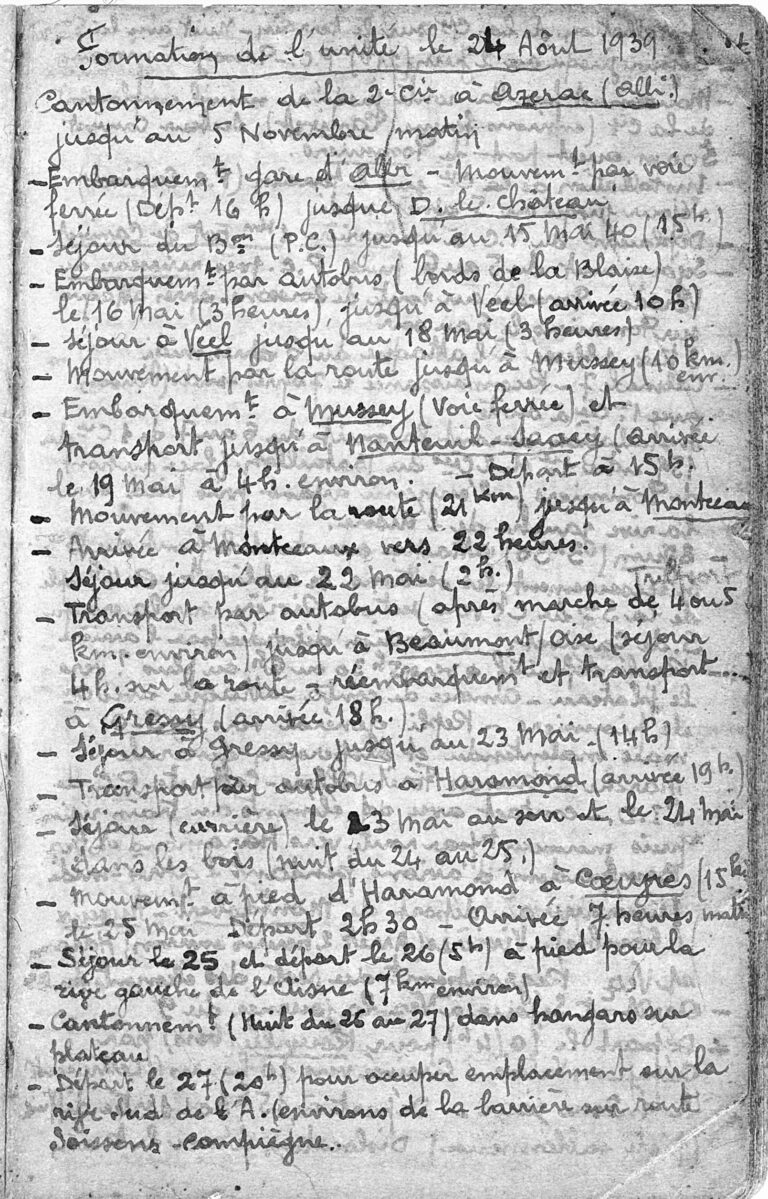 Formation de l'unité le 24 Aôut 1939
Cantonnement de la 2e Cie à Azerac (Albi.)
jusqu'au 5 Novembre matin
- Embarquemt gare d'Albi - Mouvemt par voie
ferrée (Dépt 16 h) jusque D. le. Chateau
- Séjour du Bon (P.C.) jusqu'au 15 Mai 40 (15h.
- Embarquemt par autobus (bords de la Blaise)
le 16 Mai (3 heures) jusqu'à Véel (arrivée 10h)
- Séjour à Véel jusqu'au 18 Mai (3 heures)
- Mouvement par la route jusqu'à Mussey (10 km.
env.)
- Embarquemt à Mussey (Voie ferrée) et
transport jusqu'à Nanteuil-Saacy (arrivée
le 19 Mai à 4h. environ. - Départ à 15h.
- Mouvement par la route (21 km) jusqu'à Montceau
- Arrivée à Montceaux vers 22 heures.
Séjour jusqu'au 22 Mai (2h.)
- Transport par autobus (après marche de 4 ou 5
km. environ) jusqu'à Beaumont/Oise (séjour
4h. sur la route - réembarquemt et transport....
à Gressy (arrivée 18h.)
- Séjour à Gressy jusqu'au 23 Mai - (14h)
- Transport par autobus à Haramond (arrivée 19h.
- Séjour (carrière) le 23 Mai au soir et le 24 Mai
dans les bois (nuit du 24 au 25.)
- Mouvemt à pied d'Haramond à Cœuvres (15 k
le 25 Mai Départ 2h30 - Arrivée 7 heures mati
- Séjour le 25 et départ le 26 (5h) à pied pour la
rive gauche de l'Aisne (7 km environ)
- Cantonnemt (Nuit du 26 au 27) dans hangars sur
plateau
- Départ le 27 (20h) pour occuper emplacement sur la
rive Sud de l'A. (environs de la barrière sur route
Soissons-Compiègne..